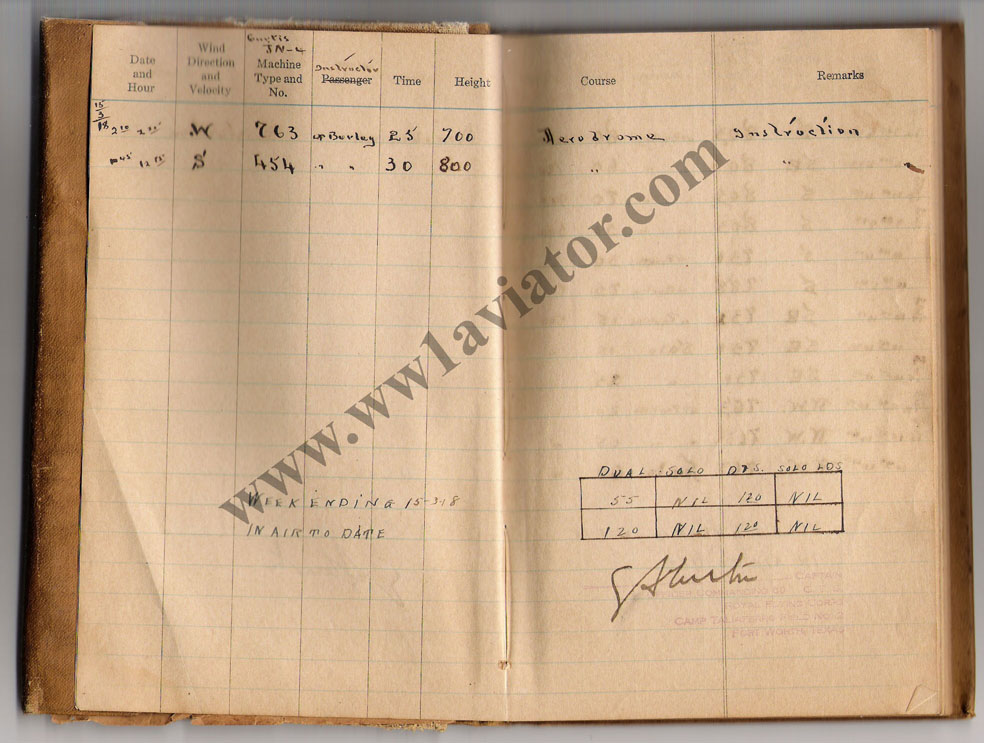 Curtis
JN-4
Date and Hour Wind Direction and Velocity Machine Type and No. Instructor Passenger Time Height Course Remarks
15
3
18 W 763 Borley 25 700 Aerodrome Instruction
S 454 " " 30 800 " "
www.ww1aviator.com
DUAL SOLO SOLO LDS
WEEK ENDING 15-3-18 55 NIL 120 NIL
IN AIR TO DATE 120 NIL 120 NIL
CAPTAIN
COMMANDING
ROYAL FLYING CORPS
CAMP TALIAFERRO FIELD NO. 2
FORT WORTH, TEXAS